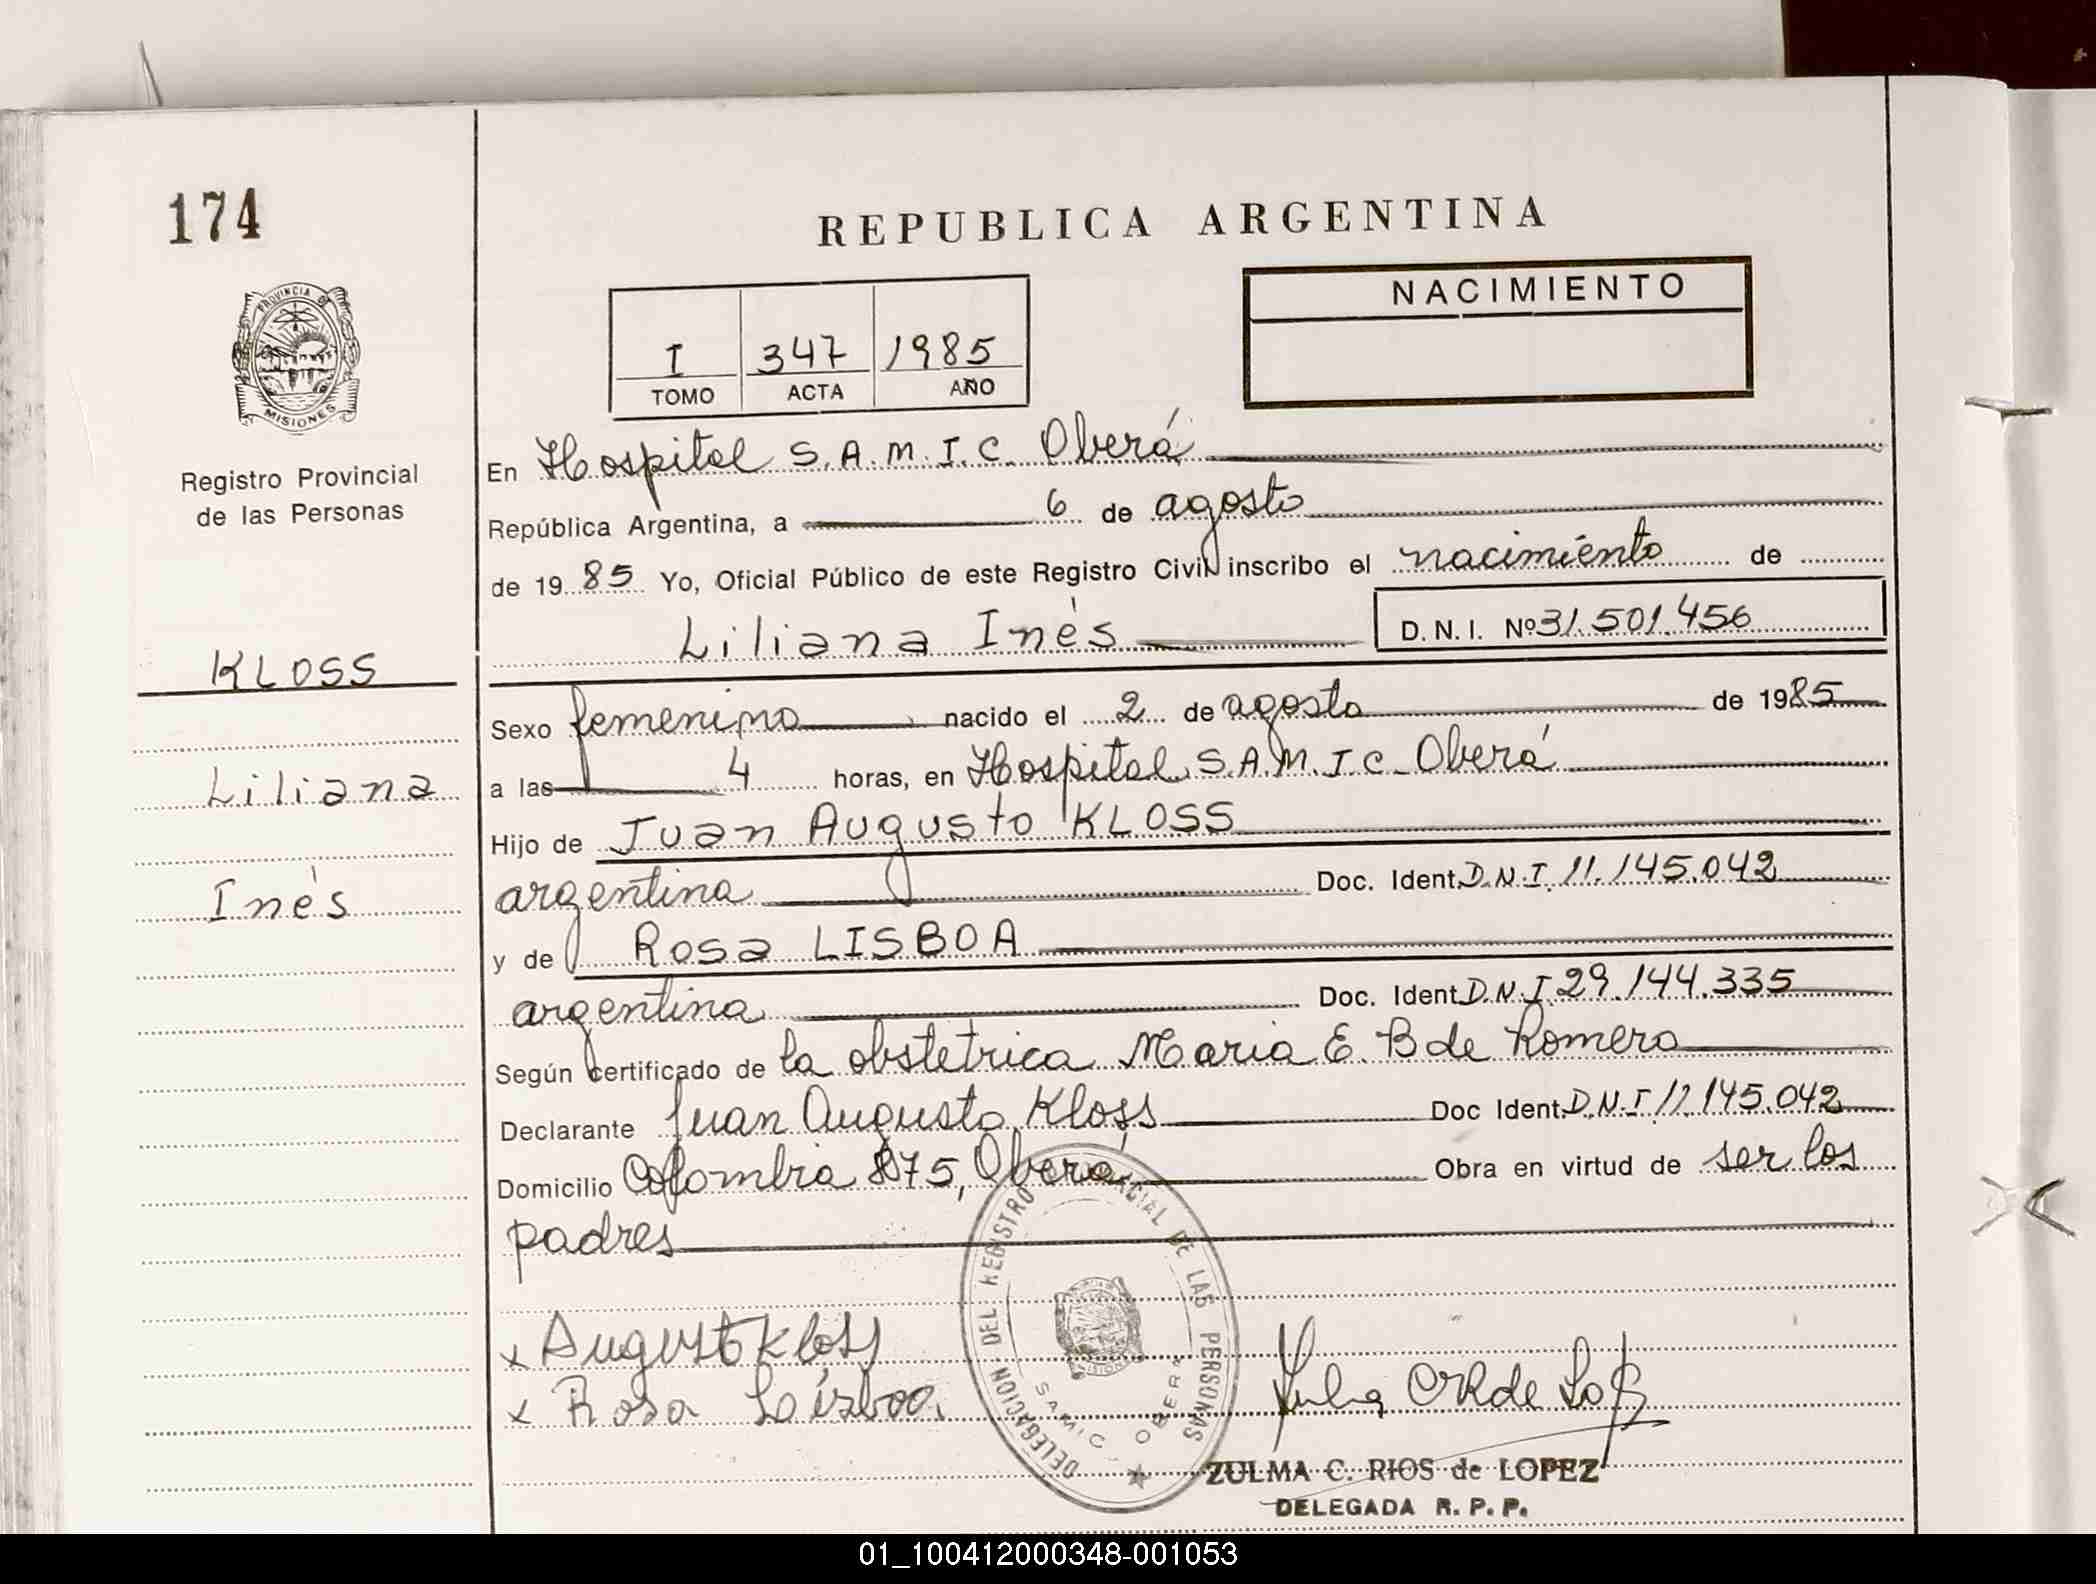 174
REPUBLICA ARGENTINA
PROVINCIA DE
MISIONES
NACIMIENTO
I 347 1985
TOMO ACTA AÑO
Registro Provincial
de las Personas
En Hospital S.A.M.I.C. Oberá
República Argentina, a 6 de agosto
de 1985 Yo, Oficial Público de este Registro Civil inscribo el nacimiento de
Liliana Inés D.N.I. Nº 31.501.456
KLOSS
Liliana
Inés
Sexo femenino nacido el 2 de agosto de 1985
a las 4 horas, en Hospital S.A.M.I.C. Oberá
Hijo de Juan Augusto KLOSS
argentina Doc. Ident. D.N.I. 11.145.042
y de Rosa LISBOA
argentina Doc. Ident. D.N.I 29.144.335
Según certificado de la obstetrica Maria E. B de Romero
Declarante Juan Augusto Kloss Doc Ident. D.N.I 11.145.042
Domicilio Colombia 875, Oberá Obra en virtud de ser los
padres
DELEGACION DEL REGISTRO PROVINCIAL DE LAS PERSONAS
SAMIC OBERA
x August Kloss
x Rosa Loisboa
ZULMA C. RIOS de LOPEZ
DELEGADA R. P. P.
01_100412000348-001053